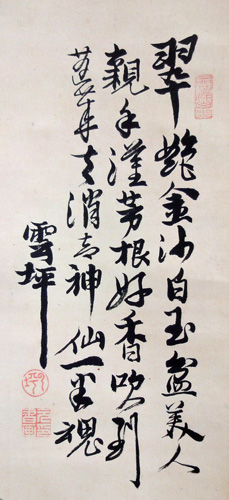 翠艶金沙白玉盆美人
親手灌芳根好香吹到
蓬莱去消尽神仙一半魂
雲坪